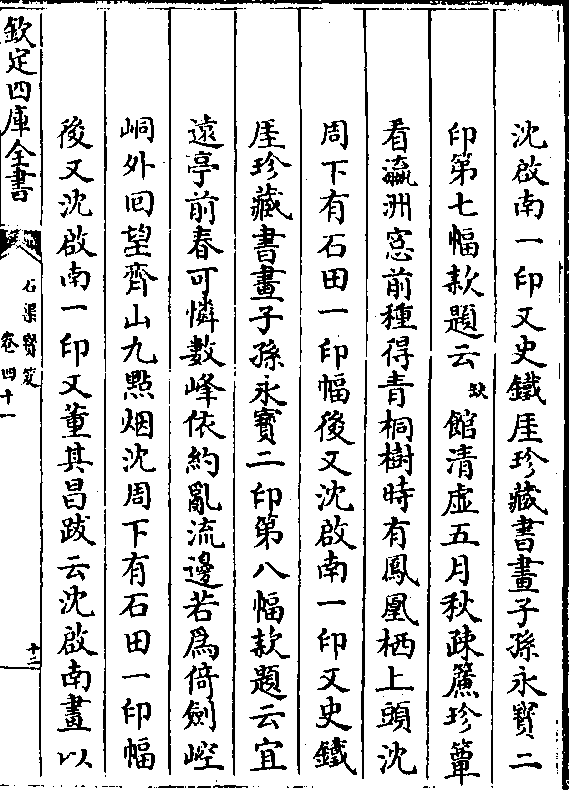 沈啟南一印又史鐵厓珍藏書畫子孫永寶二
印第七幅款題云缺館清虛五月秋疎簾珍簟
看瀛洲窓前種得青桐樹時有鳳凰栖上頭沈
周下有石田一印幅後又沈啟南一印又史鐵
厓珍藏書畫子孫永寶二印第八幅款題云宜
遠亭前春可憐數峰依約亂流邊若爲倚劍崆
峒外回望齊山九點烟沈周下有石田一印幅
後又沈啟南一印又董其昌跋云沈啟南畫以
欽定四庫全書
石渠寳笈
卷四十一
十二